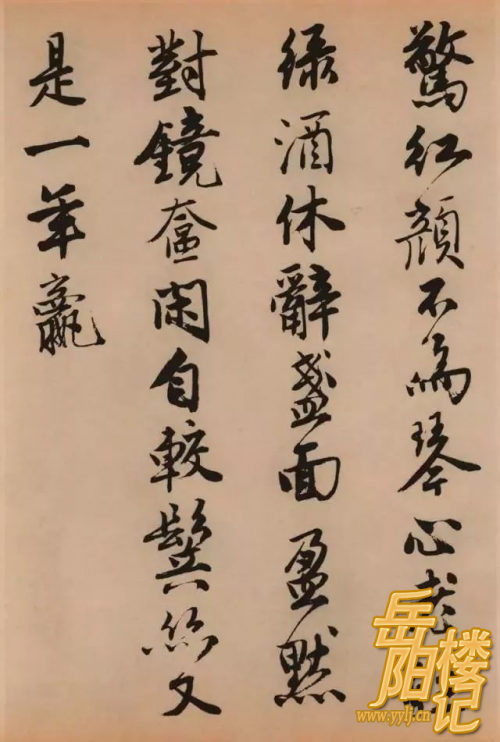 驚紅顏不為琴心老
緑酒休辭盞面盈默
對鏡奩閑自較鬢絲又
是一年贏
岳阳楼记
www.yylj.cn